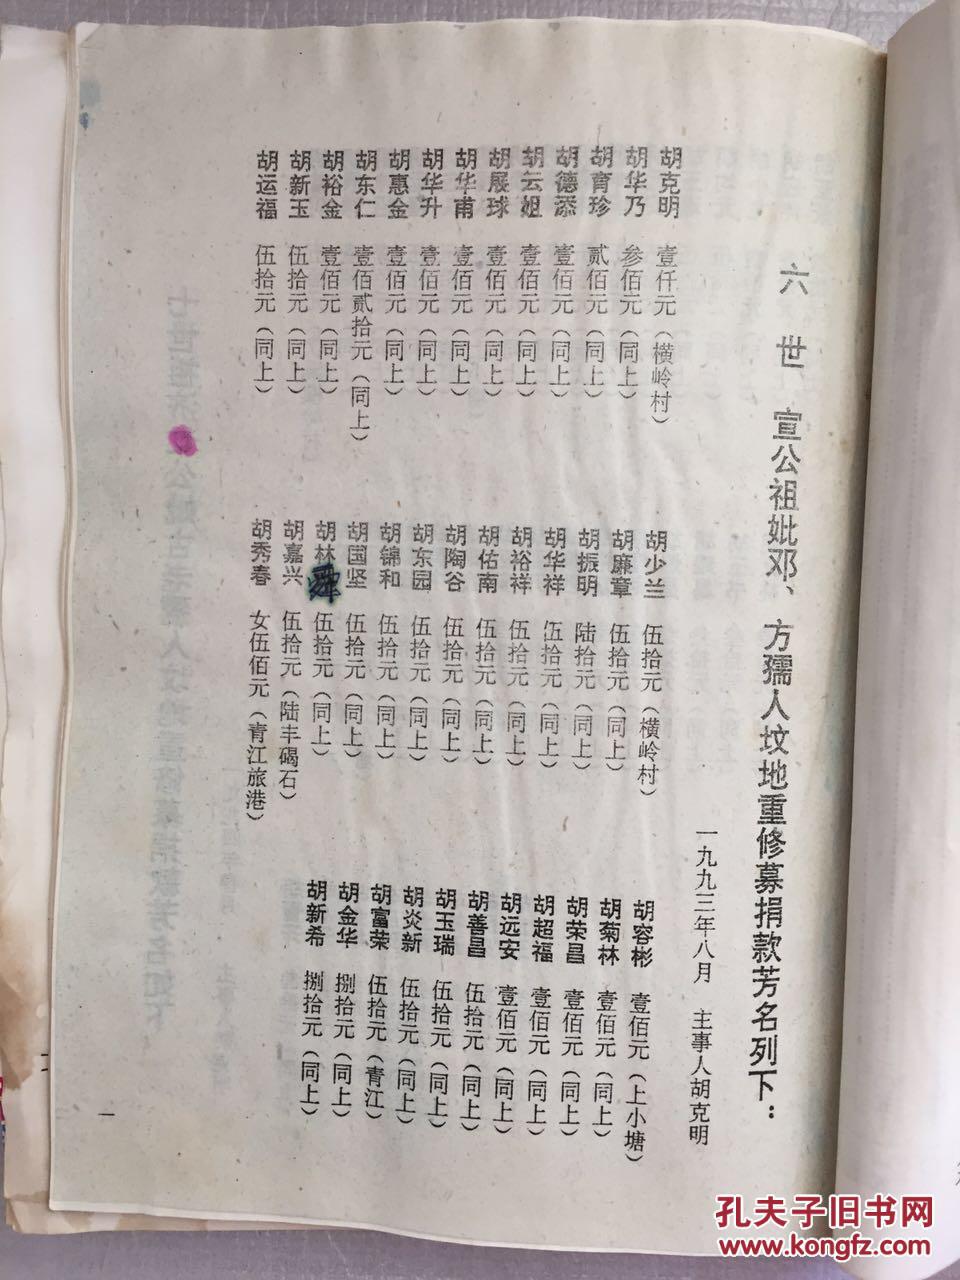 六世 宣公祖妣邓、方孺人坟地重修募捐款芳名列下：
一九九三年八月 主事人胡克明
胡克明 壹仟元（横岭村）
胡华乃 参佰元（同上）
胡育珍 贰佰元（同上）
胡德添 壹佰元（同上）
胡云姐 壹佰元（同上）
胡展球 壹佰元（同上）
胡华甫 壹佰元（同上）
胡华升 壹佰元（同上）
胡惠金 壹佰元（同上）
胡东仁 壹佰贰拾元（同上）
胡裕金 壹佰元（同上）
胡新玉 伍拾元（同上）
胡运福 伍拾元（同上）
胡少兰 伍拾元（横岭村）
胡廉章 伍拾元（同上）
胡振明 陆拾元（同上）
胡华祥 伍拾元（同上）
胡裕祥 伍拾元（同上）
胡佑南 伍拾元（同上）
胡陶谷 伍拾元（同上）
胡东园 伍拾元（同上）
胡锦和 伍拾元（同上）
胡国坚 伍拾元（同上）
胡林舜 伍拾元（同上）
胡嘉兴 伍拾元（陆丰碣石）
胡秀春 女伍佰元（青江旅港）
胡容彬 壹佰元（上小塘）
胡菊林 壹佰元（同上）
胡荣昌 壹佰元（同上）
胡超福 壹佰元（同上）
胡远安 壹佰元（同上）
胡善昌 伍拾元（同上）
胡玉瑞 伍拾元（同上）
胡炎新 伍拾元（同上）
胡富荣 伍拾元（青江）
胡金华 捌拾元（同上）
胡新希 捌拾元（同上）
一
孔夫子旧书网
www.kongfz.com